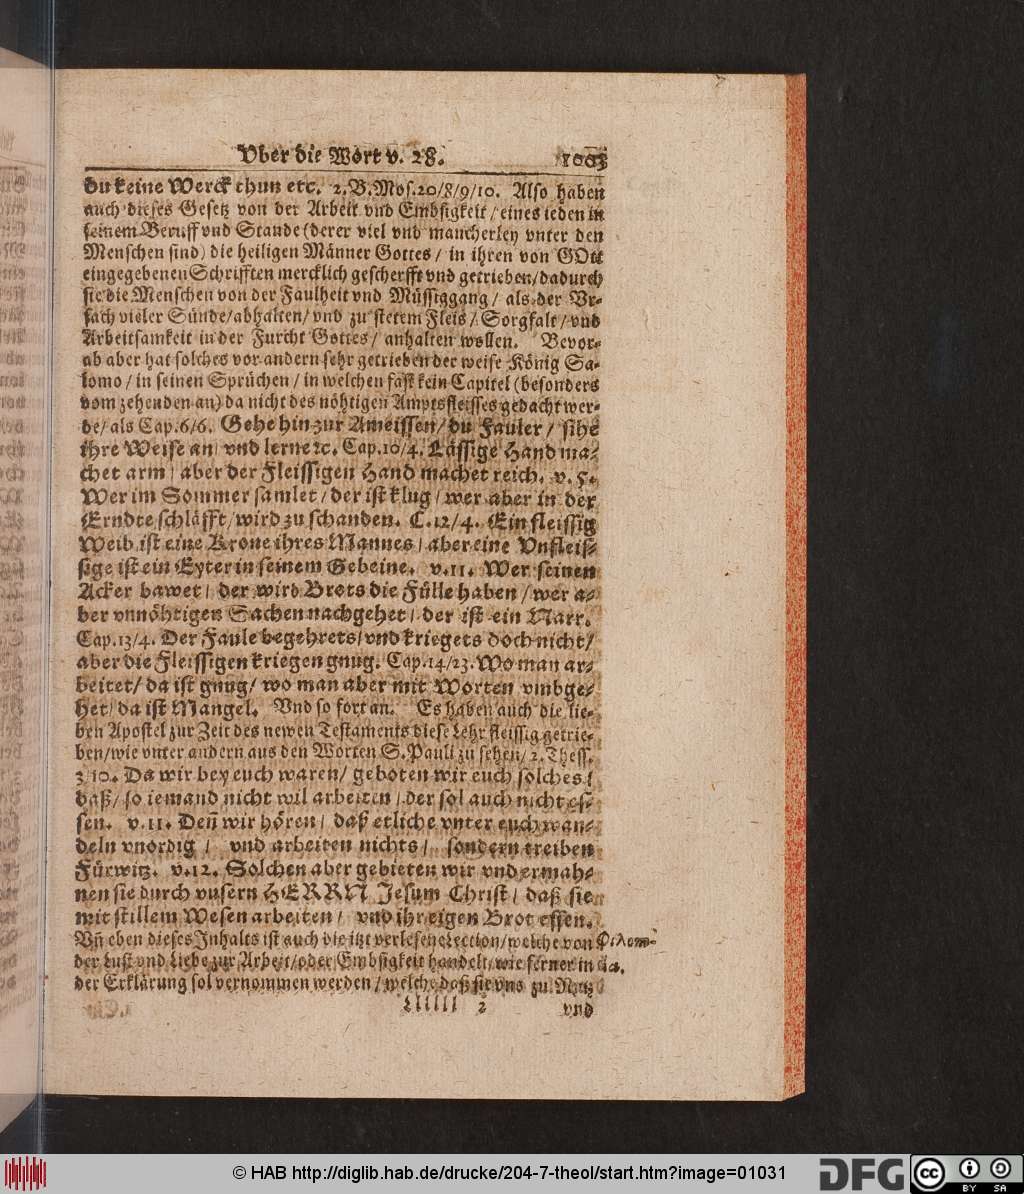 Vber die Wort v. 28. 1003
du keine Werck thun etc. 2. B. Mos. 20/8/9/10. Also haben
auch dieses Gesetz von der Arbeit vnd Embsigkeit / eines ieden in
seinem Beruff vnd Stande (derer viel vnd mancherley vnter den
Menschen sind) die heiligen Männer Gottes / in ihren von GOtt
eingegebenen Schrifften mercklich gescherfft vnd getrieben / dadurch
sie die Menschen von der Faulheit vnd Müssiggang / als der Vr-
sach vieler Sünde / abhalten / vnd zu stetem Fleis / Sorgfalt / vnd
Arbeitsamkeit in der Furcht Gottes / anhalten wollen. Bevor-
ab aber hat solches vor andern sehr getrieben der weise König Sa-
lomo / in seinen Sprüchen / in welchen fast kein Capitel (besonders
vom zehenden an) da nicht des nöhtigen Amptsfleisses gedacht wer-
de / als Cap. 6/6. Gehe hin zur Ameissen / du Fauler / sihe
ihre Weise an / vnd lerne ꝛc. Cap. 10/4. Lässige Hand ma-
chet arm / aber der Fleissigen Hand machet reich. v. 5.
Wer im Sommer samlet / der ist klug / wer aber in der
Erndte schläfft / wird zu schanden. C. 12/4. Ein fleissig
Weib ist eine Krone ihres Mannes / aber eine Vnfleis-
sige ist ein Eyter in seinem Gebeine. v. 11. Wer seinen
Acker bawet / der wird Brots die Fülle haben / wer a-
ber vnnöhtigen Sachen nachgehet / der ist ein Narr.
Cap. 13/4. Der Faule begehrets / vnd kriegets doch nicht /
aber die Fleissigen kriegen gnug. Cap. 14/23. Wo man ar-
beitet / da ist gnug / wo man aber mit Worten vmbge-
het / da ist Mangel. Vnd so fort an. Es haben auch die lie-
ben Apostel zur Zeit des newen Testaments diese Lehr fleissig getrie-
ben / wie vnter andern aus den Worten S. Pauli zu sehen / 2. Thess.
3/10. Da wir bey euch waren / geboten wir euch solches /
daß / so iemand nicht wil arbeiten / der sol auch nicht es-
sen. v. 11. Deñ wir hören / daß etliche vnter euch wan-
deln vnordig / vnd arbeiten nichts / sondern treiben
Fürwitz. v. 12. Solchen aber gebieten wir vnd ermah-
nen sie durch vnsern HERRN Jesum Christ / daß sie
mit stillem Wesen arbeiten / vnd ihr eigen Brot essen.
Vñ eben dieses Inhalts ist auch die itzt verlesene Lection / welche von Φιλεπι-
der Lust vnd Liebe zur Arbeit / oder Embsigkeit handelt / wie ferner in
der Erklärung sol vernommen werden / welche daß sie vns zu Nutz
Llllll 2 vnd
© HAB http://diglib.hab.de/drucke/204-7-theol/start.htm?image=01031
DFG
cc BY SA